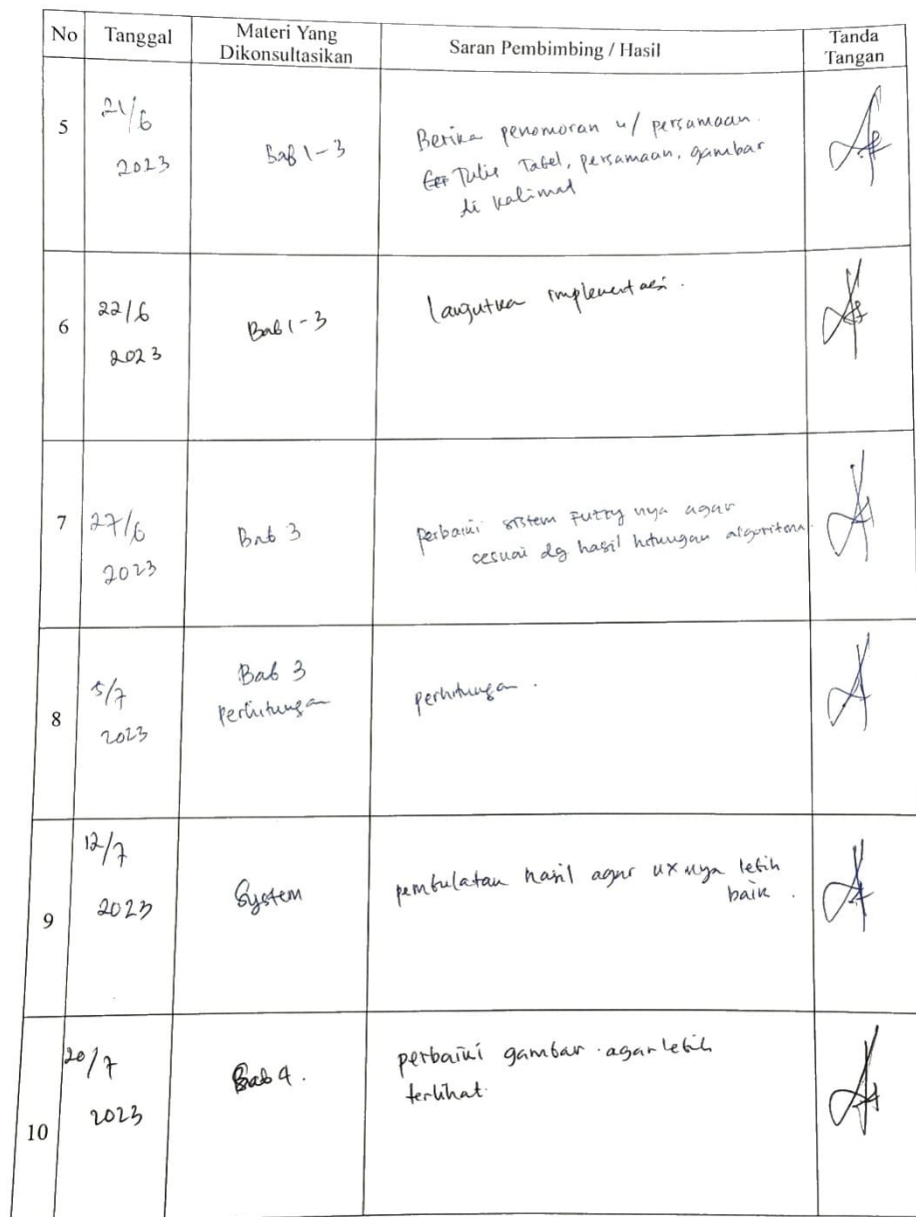 No Tanggal Materi Yang Dikonsultasikan Saran Pembimbing / Hasil Tanda Tangan
5 21/6 2023 Bab 1-3 Berika penomoran u/ persamaan.
Tulis Tabel, persamaan, gambar
di kalimat
6 22/6 2023 Bab 1-3 Langutkan implementasi.
7 27/6 2023 Bab 3 perbaiki sistem Fuzzy nya agar
sesuai dg hasil hitungan algoritma.
8 5/7 2023 Bab 3 perhitungan perhitungan.
9 12/7 2023 System pembulatan hasil agar ux nya lebih
baik.
10 20/7 2023 Bab 4. perbaiki gambar agar lebih
terlihat.